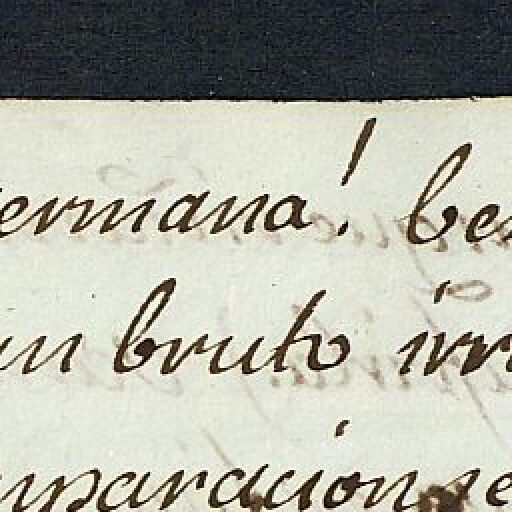 ermana! be
un bruto irr
mparación se